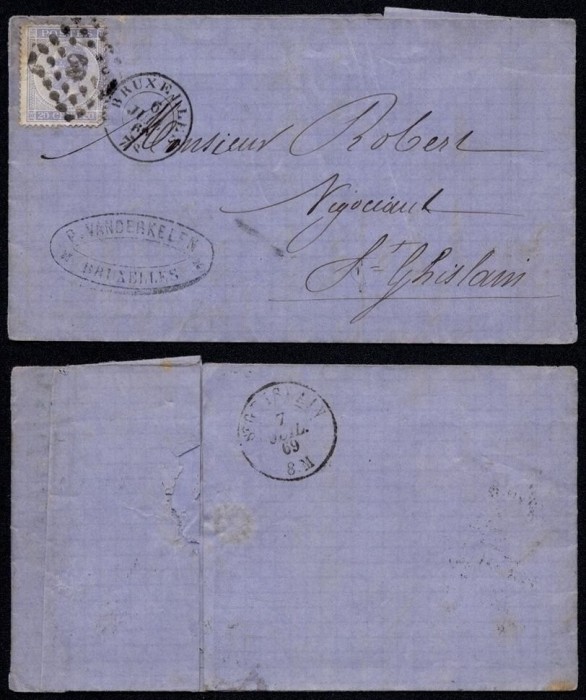 20 C 20
BRUXELLES
6
JUIL
69
Monsieur Robert
Négociant
St Ghislain
P. VANDERKELEN
BRUXELLES
ST GHISLAIN
7
JUIL.
69
8-M